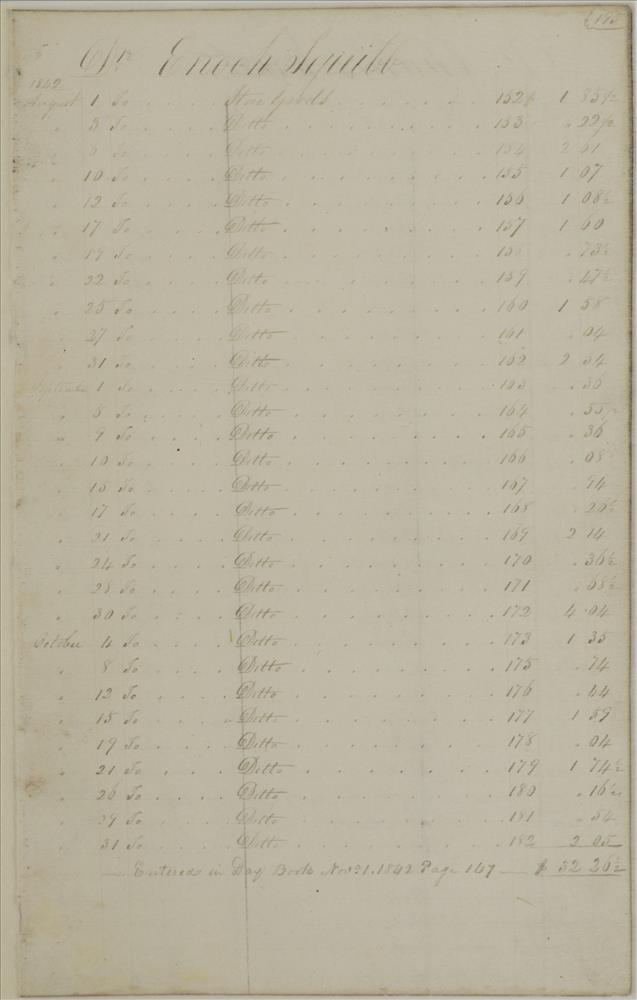 195
Dr Enoch Squibb
1842
August 1 To . . . . Store Goods . . . . . . 152 $ 1 85½
" 3 To . . . . Ditto . . . . . . . . 153 . 22½
" To . . . . Ditto . . . . . . . . 154 2 61
" 10 To . . . . Ditto . . . . . . . . 155 1 07
" 12 To . . . . Ditto . . . . . . . . 156 1 08½
" 17 To . . . . Ditto . . . . . . . . 157 1 60
" 19 To . . . . Ditto . . . . . . . . 158 . 73½
" 22 To . . . . Ditto . . . . . . . . 159 . 47½
" 25 To . . . . Ditto . . . . . . . . 160 1 58
" 27 To . . . . Ditto . . . . . . . . 161 . 04
" 31 To . . . . Ditto . . . . . . . . 162 2 34
September 1 To . . . . Ditto . . . . . . . . 163 . 36
" To . . . . Ditto . . . . . . . . 164 . 55
" 9 To . . . . Ditto . . . . . . . . 165 . 36
" 10 To . . . . Ditto . . . . . . . . 166 . 08
" 15 To . . . . Ditto . . . . . . . . 167 . 94
" 17 To . . . . Ditto . . . . . . . . 168 . 20½
" 21 To . . . . Ditto . . . . . . . . 169 2 14
" 24 To . . . . Ditto . . . . . . . . 170 . 36½
" 28 To . . . . Ditto . . . . . . . . 171 . 68½
" 30 To . . . . Ditto . . . . . . . . 172 4 04
October 4 To . . . . Ditto . . . . . . . . 173 1 35
" 8 To . . . . Ditto . . . . . . . . 175 . 74
" 12 To . . . . Ditto . . . . . . . . 176 . 44
" 15 To . . . . Ditto . . . . . . . . 177 1 59
" 19 To . . . . Ditto . . . . . . . . 178 . 04
" 21 To . . . . Ditto . . . . . . . . 179 1 74½
" 26 To . . . . Ditto . . . . . . . . 180 . 16½
" 29 To . . . . Ditto . . . . . . . . 181 . 34
" 31 To . . . . Ditto . . . . . . . . 182 2 05
Entered in Day Book Novr 1. 1842 Page 147 — $ 32 26½